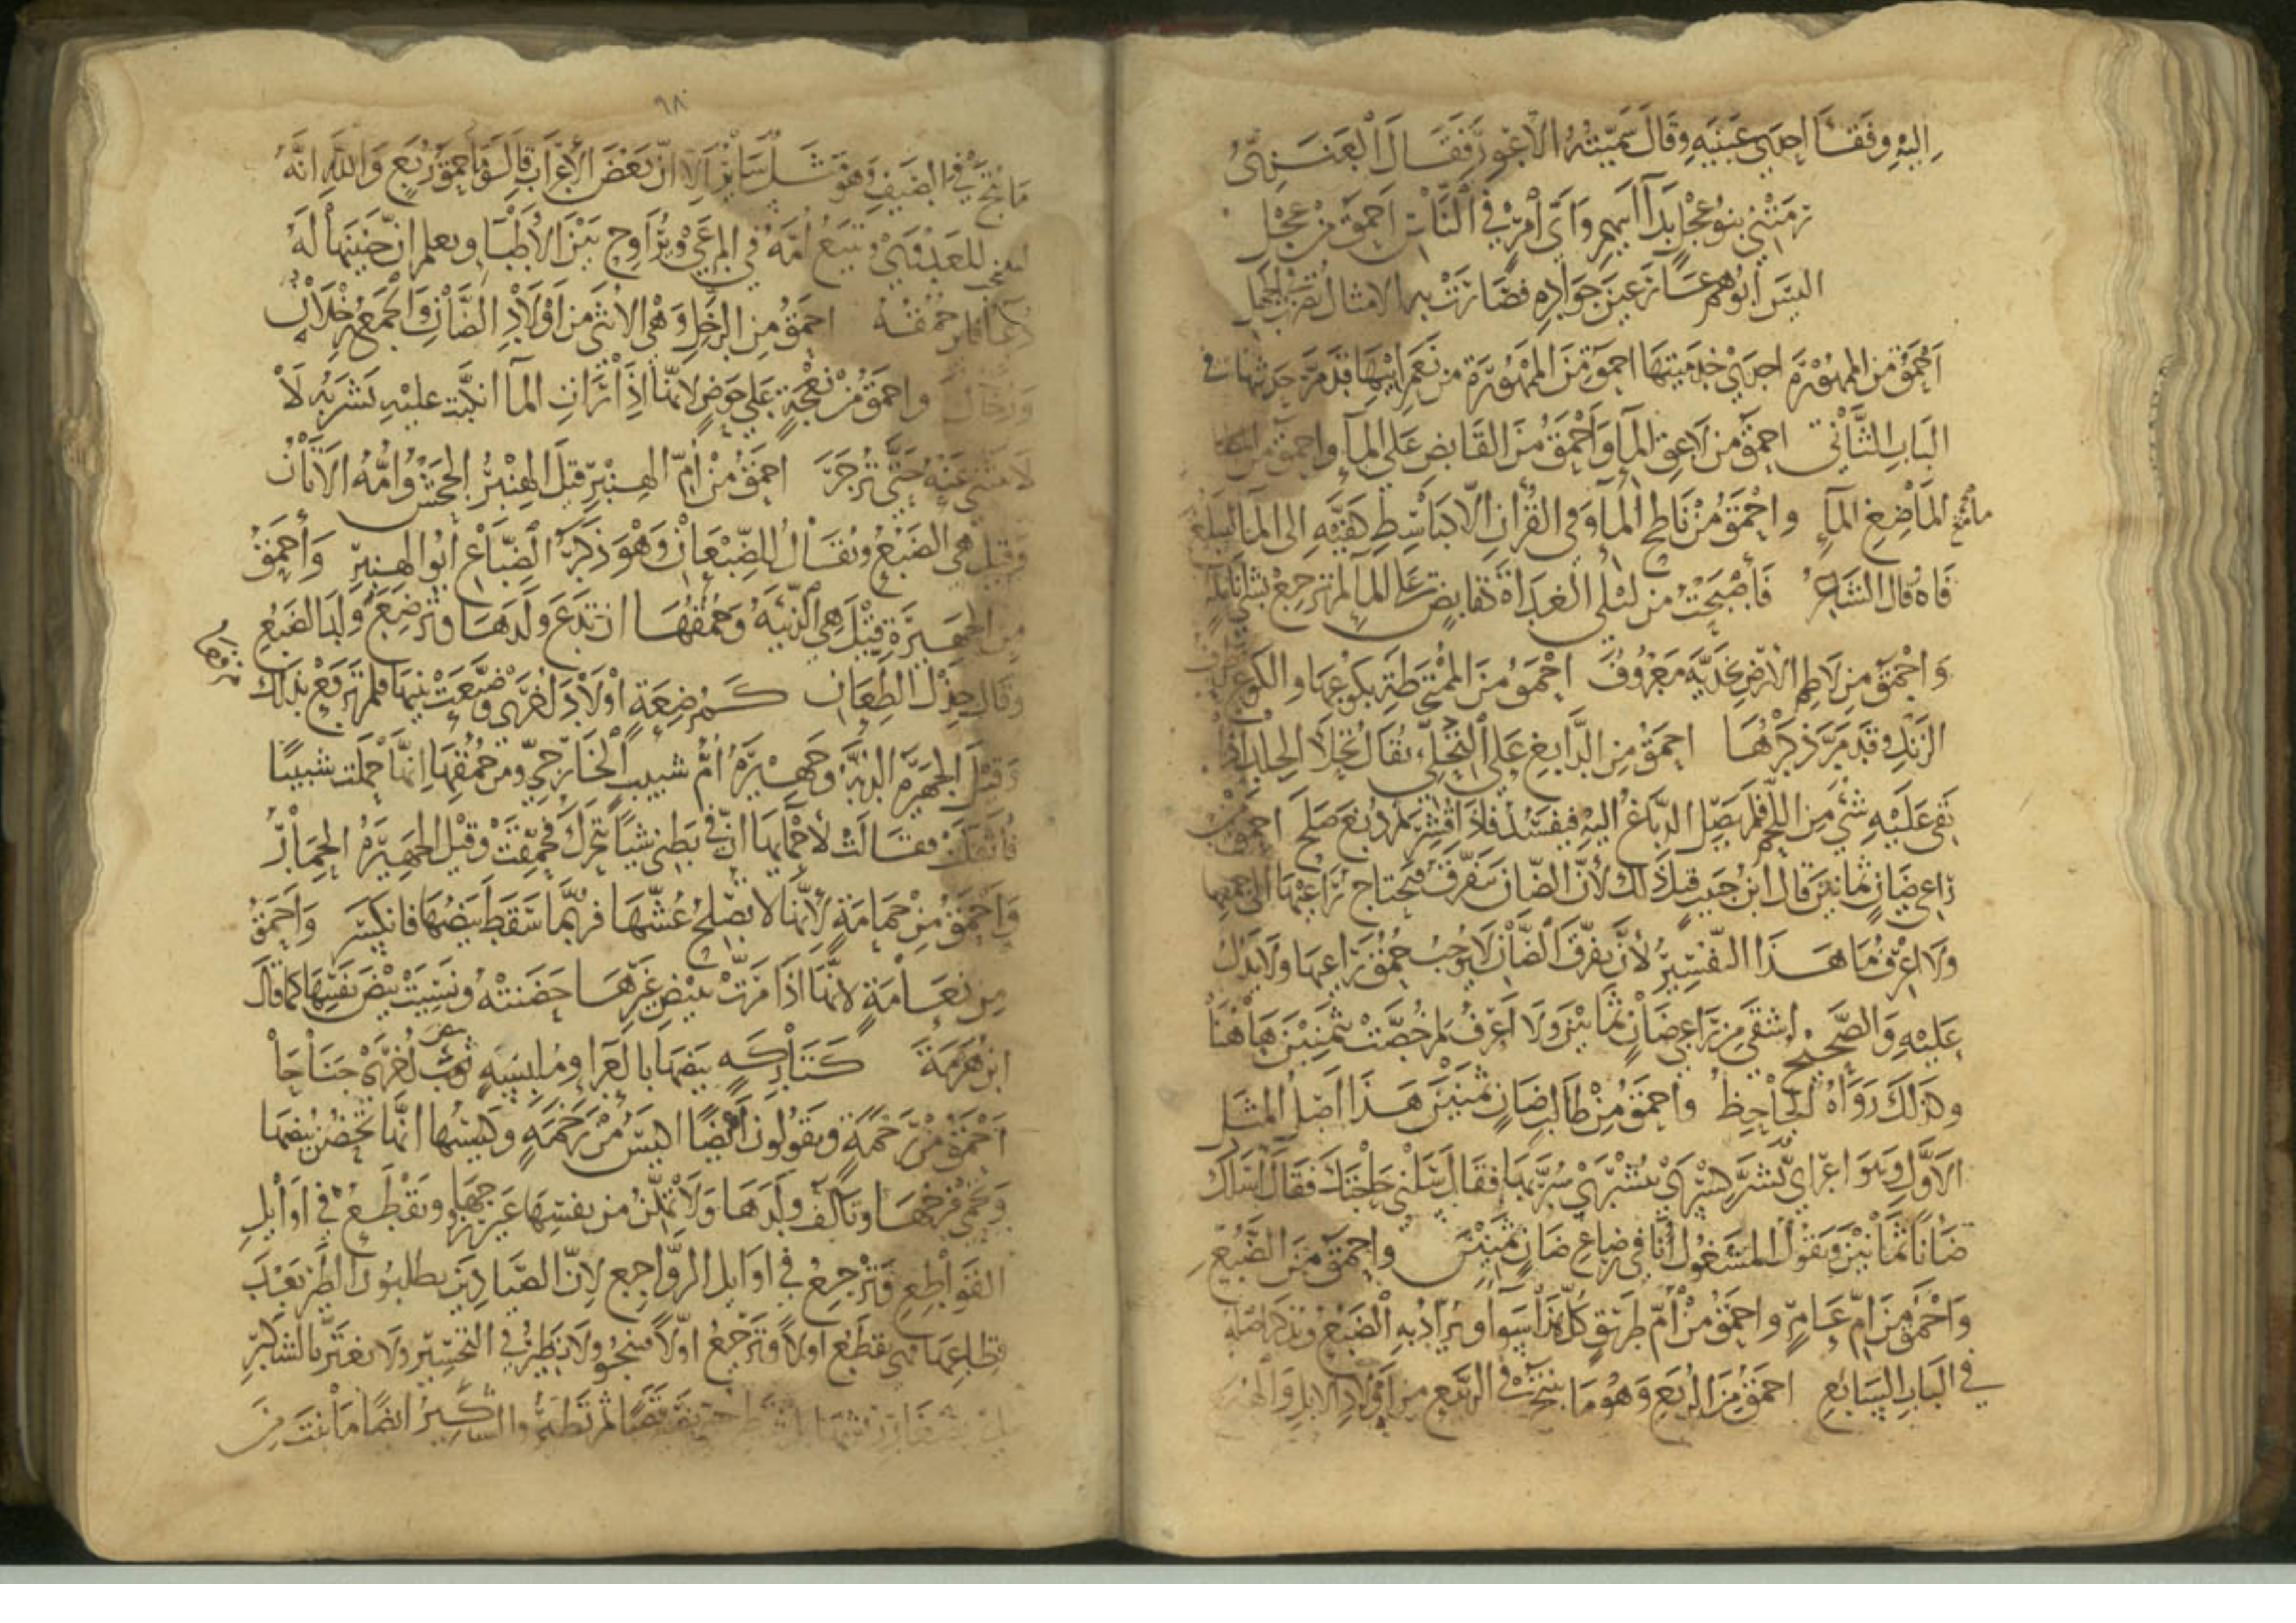 اليه وفقأ احدى عينيه وقال سميته الاعور فقال العنزي
رمتني بنو عجل بدآء ابيهم واى امرئ في الناس احمق من عجل
اليس ابوهم عار عين جواده فصارت به الامثال تضرب بالجهل
احمق من الممهورة احدى خدمتيها احمق من الممهورة من نعم ابيها قد مر حديثها في
الباب الثاني احمق من لاعق المآء واحمق من القابض على المآء واحمق من
الماضغ المآء واحمق من ناطح المآء وفي القران الا كباسط كفيه الى المآء ليبلغ
فاه قال الشاعر فأصبحت من ليلى الغداة كقابض على المآء لم ترجع بشئ انامله
واحمق من لاطم الارض بخديه معروف احمق من الممتخطة بكوعها والكوع طرف
الزند وقد مر ذكرها احمق من الدابغ على التحلئ يقال تحلأ الجلد اذا
بقي عليه شئ من اللحم فلم يصل الدباغ اليه فيفسد فاذا قشر ثم دبغ صلح احمق من
راعي ضان ثمانين قال ابن حبيب قيل ذلك لأن الضان تتفرق فتحتاج راعيها الى جمعها
ولا اعرف ما هذا التفسير لأن تفرق الضأن لا يوجب حمق راعيها ولا يدل
عليه والصحيح اشقى من راعي ضان ثمانين ولا اعرف لم خصت بثمنين هاهنا
وكذلك رواه الجاحظ واحمق من طالب ضان ثمنين هذا اصل المثل
الاول وهو اعرابي بشر كسرى ببشرى سر بها فقال سلني حاجتك فقال اسالك
ضانا ثمانين ويقول المشغول انا في رضاع ضان ثمنين واحمق من الضبع
واحمق من ام عامر واحمق من ام طريق كل هذا سوآء ويراد به الضبع ونذكر اصله
في الباب السابع احمق من الربع وهو ما ينتج في الربيع من اولاد الابل والهبع
٩٨
ما نتج في الصيف وهو مثل سائر الا ان بعض الاعراب قال وما حمق ربع والله انه
ليتجنب العدوى ويتبع امه في المرعى ويراوح بين الاطبآء ويعلم ان حنينها له
دعآء فاين حمقه احمق من الرخل وهي الانثى من اولاد الضأن والجمع رخلان
ورخال واحمق من نعجة على حوض لانها اذا رات المآء انكبت عليه تشربه لا
لا تنثني عنه حتى تزجر احمق من ام الهنبر قيل الهنبر الجحش وامه الاتان
وقيل هي الضبع ويقال للضبعان وهو ذكر الضباع ابو الهنبر واحمق
من الجهيزة قيل هي الذئبة وحمقها ان تدع ولدها وترضع ولد الضبع
وقال جذل الطعان كمرضعة اولاد اخرى وضيعت بنيها فلم ترقع بذلك مرقعا
وقيل الجهيزة الدبة وجهيزة ام شبيب الخارجي ومن حمقها انها حملت شبيبا
فأثقلت فقالت لأحمايها ان في بطني شيئا يتحرك فحمقت وقيل الجهيزة الحمار
واحمق من حمامة لأنها لا تصلح عشها فربما سقط بيضها فانكسر واحمق
من نعامة لانها اذا مرت ببيض غيرها حضنته ونسيت بيض نفسها كما قال
ابن هرمة كتاركه بيضها بالعرا وملبسه بيض اخرى جناحا
احمق من رخمة ويقولون ايضا اكيس من رخمه وكيسها انها تحضن بيضها
وتحمى فرخها وتألف ولدها ولا تمكن من نفسها غير زوجها وتقطع في اوايل
القواطع وترجع في اوايل الرواجع لان الصيادين يطلبون الطير بعد
قطاعها فهي تقطع اولا وترجع اولا فتنجو ولا تطير في التحسير ولا تغتر بالشكير
والشكير ايضا ما نبت من